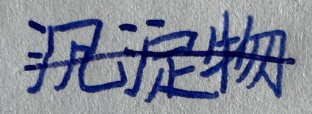 沉淀物